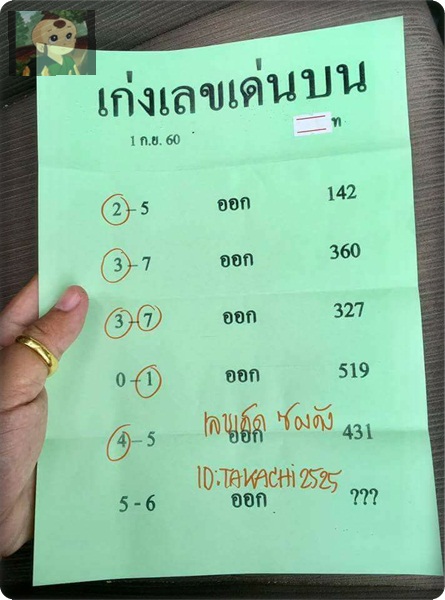 เก่งเลขเด่นบน
1 ก.ย. 60 ท
2 - 5 ออก 142
3 - 7 ออก 360
3 - 7 ออก 327
0 - 1 ออก 519
เลขเด็ด ซองดัง
4 - 5 ออก 431
ID:TAKACHI2525
5 - 6 ออก ???